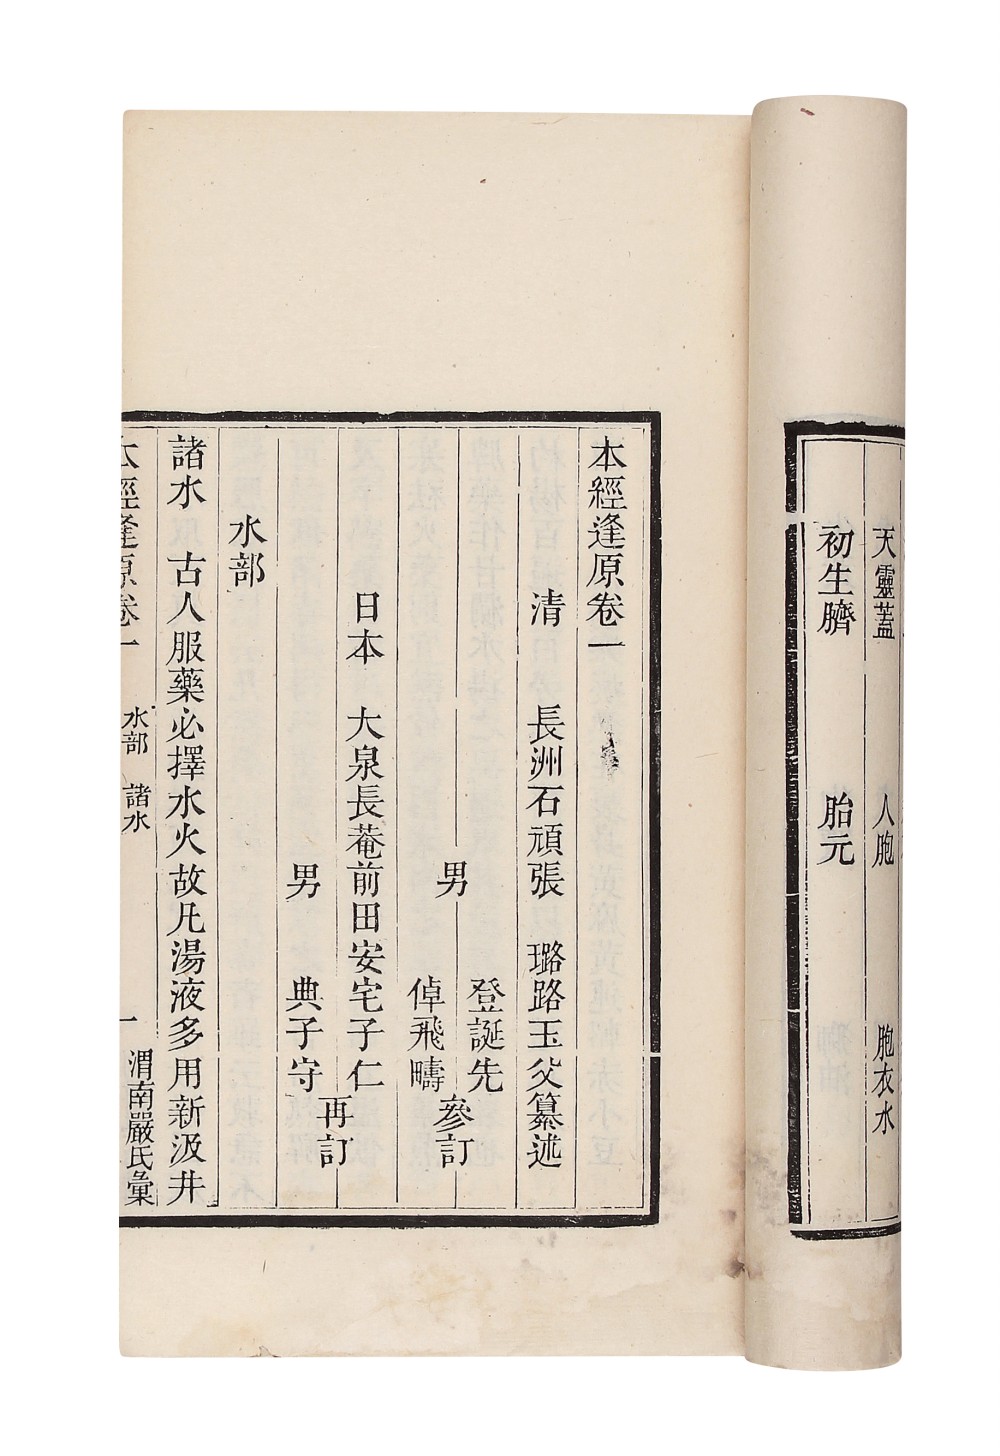 天靈蓋 人胞 胞衣水
初生臍 胎元
本經逢原卷一
清 長洲石頑張 璐路玉父纂述
男 登誕先
倬飛疇
參訂
日本 大泉長菴前田安宅子仁
男 典子守
再訂
水部
諸水 古人服藥必擇水火故凡湯液多用新汲井
本經逢原卷一 水部 諸水 一 渭南嚴氏彙